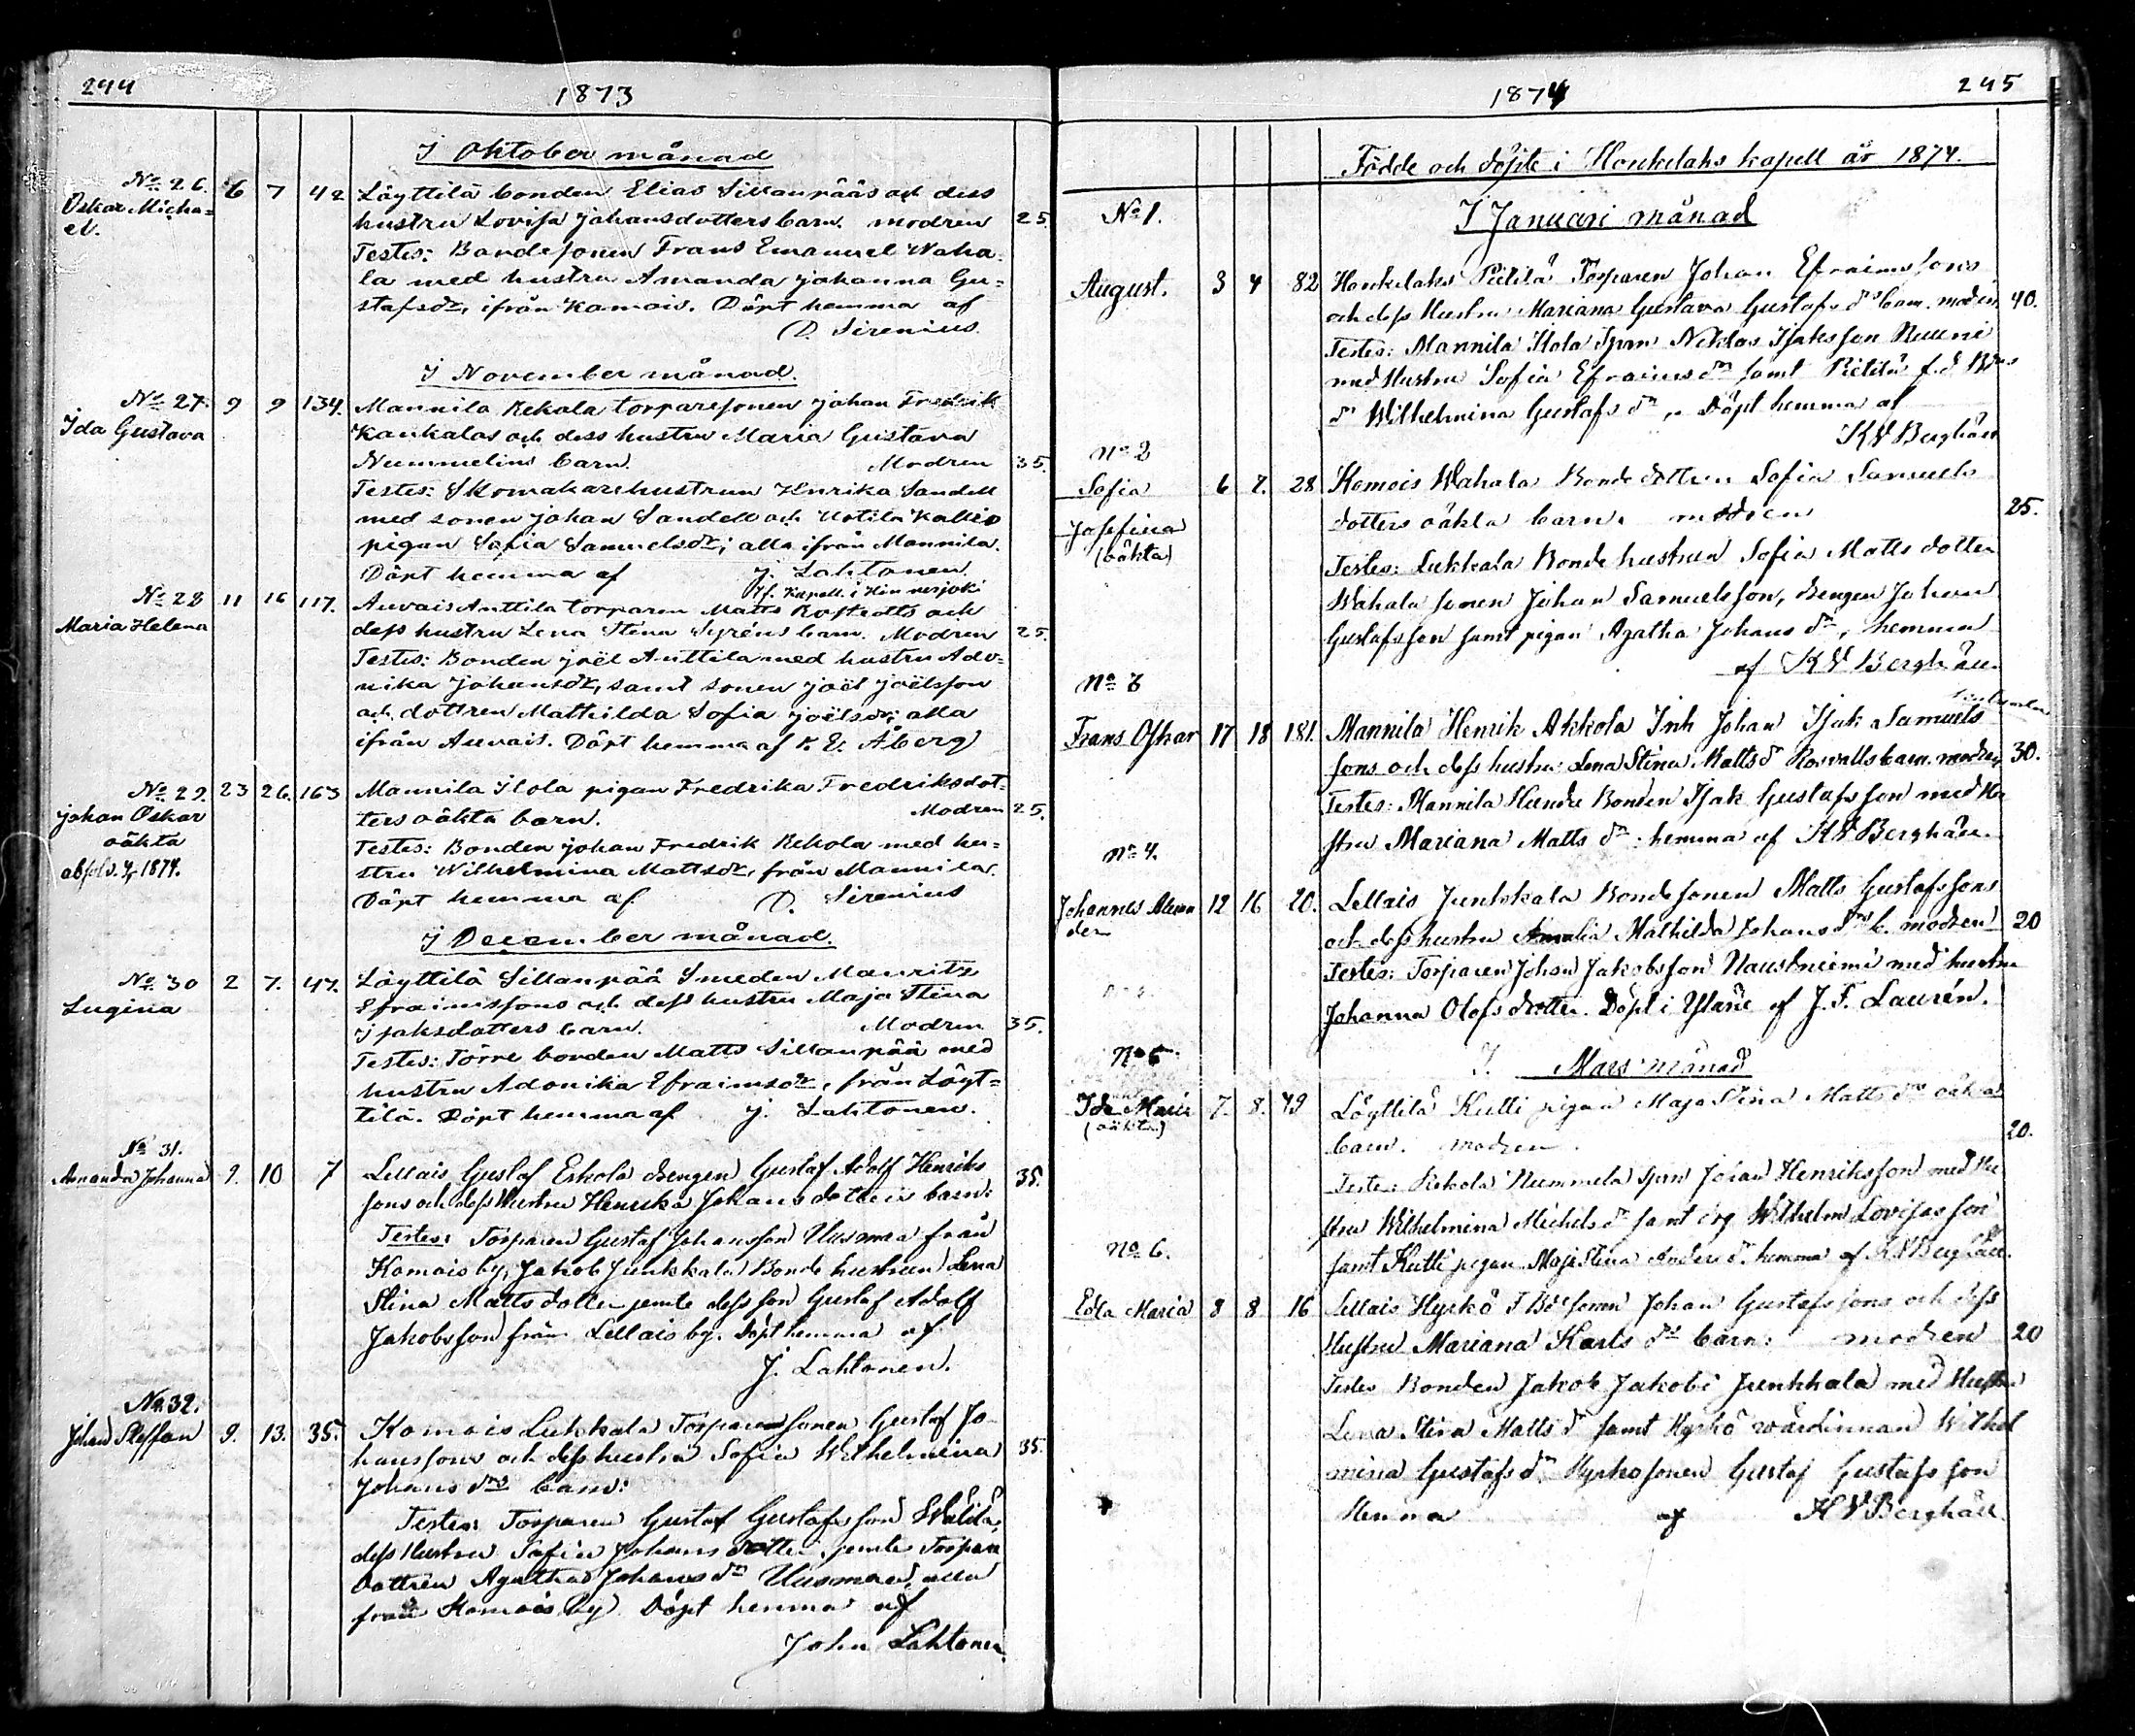 244
1873
I Oktober månad
No 26. 6 7 42 Löyttilä bonden Elias Sillanpääs och dess
Oskar Micha=
el.
hustru Lovisa Johansdotters barn. modren 25.
Testes: Bondesonen Frans Emanuel Waha=
la med hustru Amanda Johanna Gu=
stafsdr, ifrån Komois. Döpt hemma af
D. Sirenius.
I November månad.
No 27. 9 9 134. Mannila Rekola torparesonen Johan Fredrik
Ida Gustava
Kaukalas och dess hustru Maria Gustava
Nummelins barn. Modren 35.
Testes: Skomakarehustrun Henrika Sandell
med sonen Johan Sandell och Uotila Kallio
pigan Sofia Samuelsdr; alla ifrån Mannila.
Döpt hemma af J. Lahtonen.
Kapell. i Hinnerjoki
No 28 11 16 117. Auvais Anttila torparen Matts Rostedts och
Maria Helena
dess hustru Lena Stina Syréns barn. Modren 25.
Testes: Bonden Joël Anttila med hustru Ado=
nika Johansdr, samt sonen Joël Joëlsson
och dottren Mathilda Sofia Joëlsdr; alla
ifrån Auvais. Döpt hemma af K. E. Åberg
No 29. 23 26. 163 Mannila Ilola pigan Fredrika Fredriksdot=
Johan Oskar
oäkta
absolv. 1874.
ters oäkta barn. Modren 25.
Testes: Bonden Johan Fredrik Rekola med hu=
stru Wilhelmina Mattsdr, från Mannila.
Döpt hemma af D. Sirenius
I December månad.
No 30 2 7. 47. Löyttilä Sillanpää Smeden Mauritz
Lugina
Efraimssons och dess hustru Maja Stina
Isaksdotters barn. Modren 35.
Testes: Torre bonden Matts Sillanpää med
hustru Adonika Efraimsdr, från Löyt=
tilä. Döpt hemma af J. Lahtonen.
No 31.
Amanda Johanna 9. 10 7 Lellais Gustaf Eskola drengen Gustaf Adolf Henriks 35.
sons och dess Hustru Henrika Johansdotters barn:
Testes: Torparen Gustaf Johansson Uusmaa från
Komois by, Jakob Junkkala Bonde hustrun Lena
Stina Matts dotter jemte dess son Gustaf Adolf
Jakobsson från Lellais by. Döpt hemma af
J. Lahtonen.
No 32.
Johan Steffan 9. 13. 35. Komois Lukkala Torparesonen Gustaf Jo
hanssons och dess hustru Sofia Wilhelmina 35.
Johans drs barn:
Testes: Torparen Gustaf Gustafsson
dess Hustru Sofia Johans dotter, jemte Torpare
dottren Agatha Johans dr Uusmaa, alla
från Komois by. Döpt hemma af
John Lahtonen.
245
1874
Födde och döpte i Honkelahs kapell år 1874.
No 1. I Januari månad
August. 3 4 82 Honkelahs Pietilä Torparen Johan Efraimssons
och dess Hustru Mariana Gustava Gustafs drs barn. modren 40.
Testes: Mannila Ilola Niklas Isaksson
med Hustru Sofia Efraims dr samt Pietilä
dr Wilhelmina Gustafs dr, Döpt hemma af
K V Berghäll
No 2
Sofia 6 7. 28 Komois Wahala Bonde dottren Sofia Samuels
Josefina
(oäkta)
dotters oäkta barn. modren 25.
Testes: Lukkala Bonde hustrun Sofia Matts dotter
Wahala sonen Johan Samuelsson, drengen Johan
Gustafsson samt pigan Agatha Johans dr, hemma
af K V Berghäll.
No 3
Frans Oskar 17 18 181. Mannila Henrik Akkola Inh Johan Isak Samuels
sons och dess hustru Lena Stina Matts dr Rosvalls barn. modren 30.
Testes: Mannila Bonden Isak Gustafsson med Hu
stru Mariana Matts dr: hemma af K V Berghäll.
No 4.
Johannes 12 16 20. Lellais Junkkala Bonde sonen Matts Gustafssons
och dess hustru Amalia Mathilda Johans drs b. modren 20
Testes: Torparen Johan Jakobsson med hustru
Johanna Olofs dotter. Döpt i Yläne af J. F. Laurén.
No 5. I Mars månad
Ida Maria 7. 8. 79 Löyttilä Kutti pigan Maja Stina Matts drs oäkta
(oäkta)
barn. modren 20.
Testes: Rekola Nummela Johan Henriksson med Hu
stru Wilhelmina Michels dr samt Wilhelm Lovisasson
samt Kutti pigan Maja Stina Anders dr. hemma af K V Berghäll.
No 6.
Edla Maria 8 8 16 Lellais Hyrkö sonen Johan Gustafssons och dess
Hustru Mariana Karls drs barn: modren 20
Testes Bonden Jakob Jakobs Junkkala med Hustru
Lena Stina Matts dr samt Hyrkö wärdinnan Wilhel
mina Gustafs dr, Hyrkö sonen Gustaf Gustafsson
Hemma af K V Berghäll